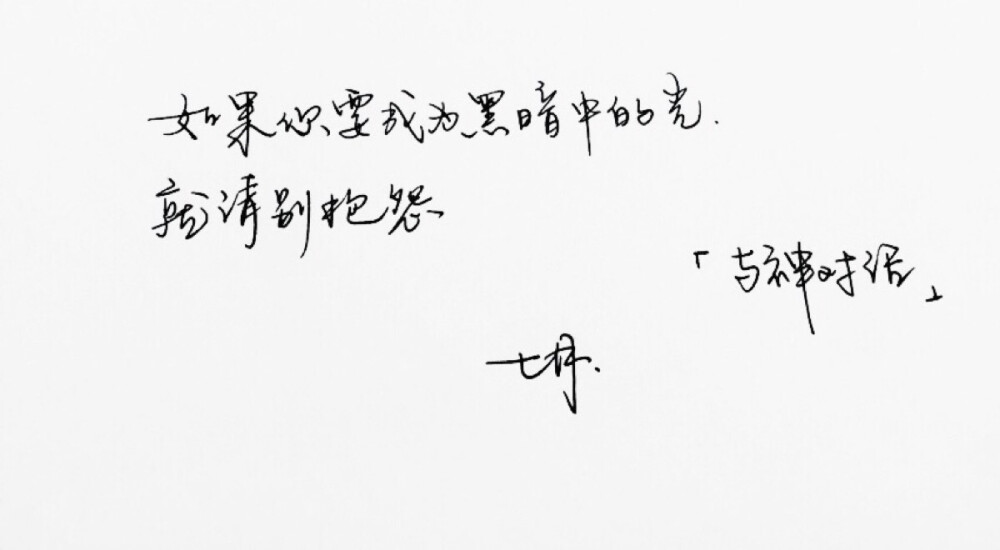 如果你要成为黑暗中的光.
就请别抱怨
「与神对话」
七